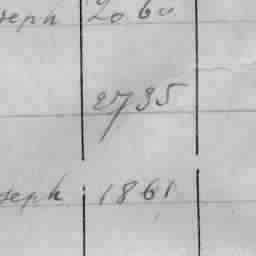 seph 2060
2735
seph 1861